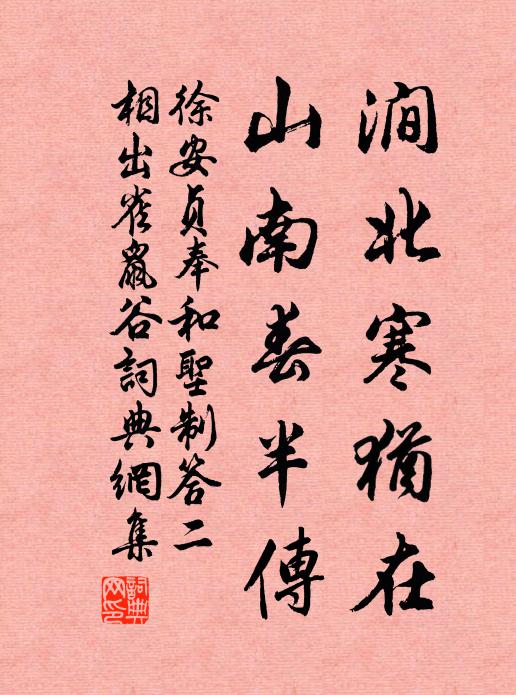 澗北寒猶在
山南春半傳
徐安貞奉和聖制答二
相出雀鼠谷詞典網集
詞典網印